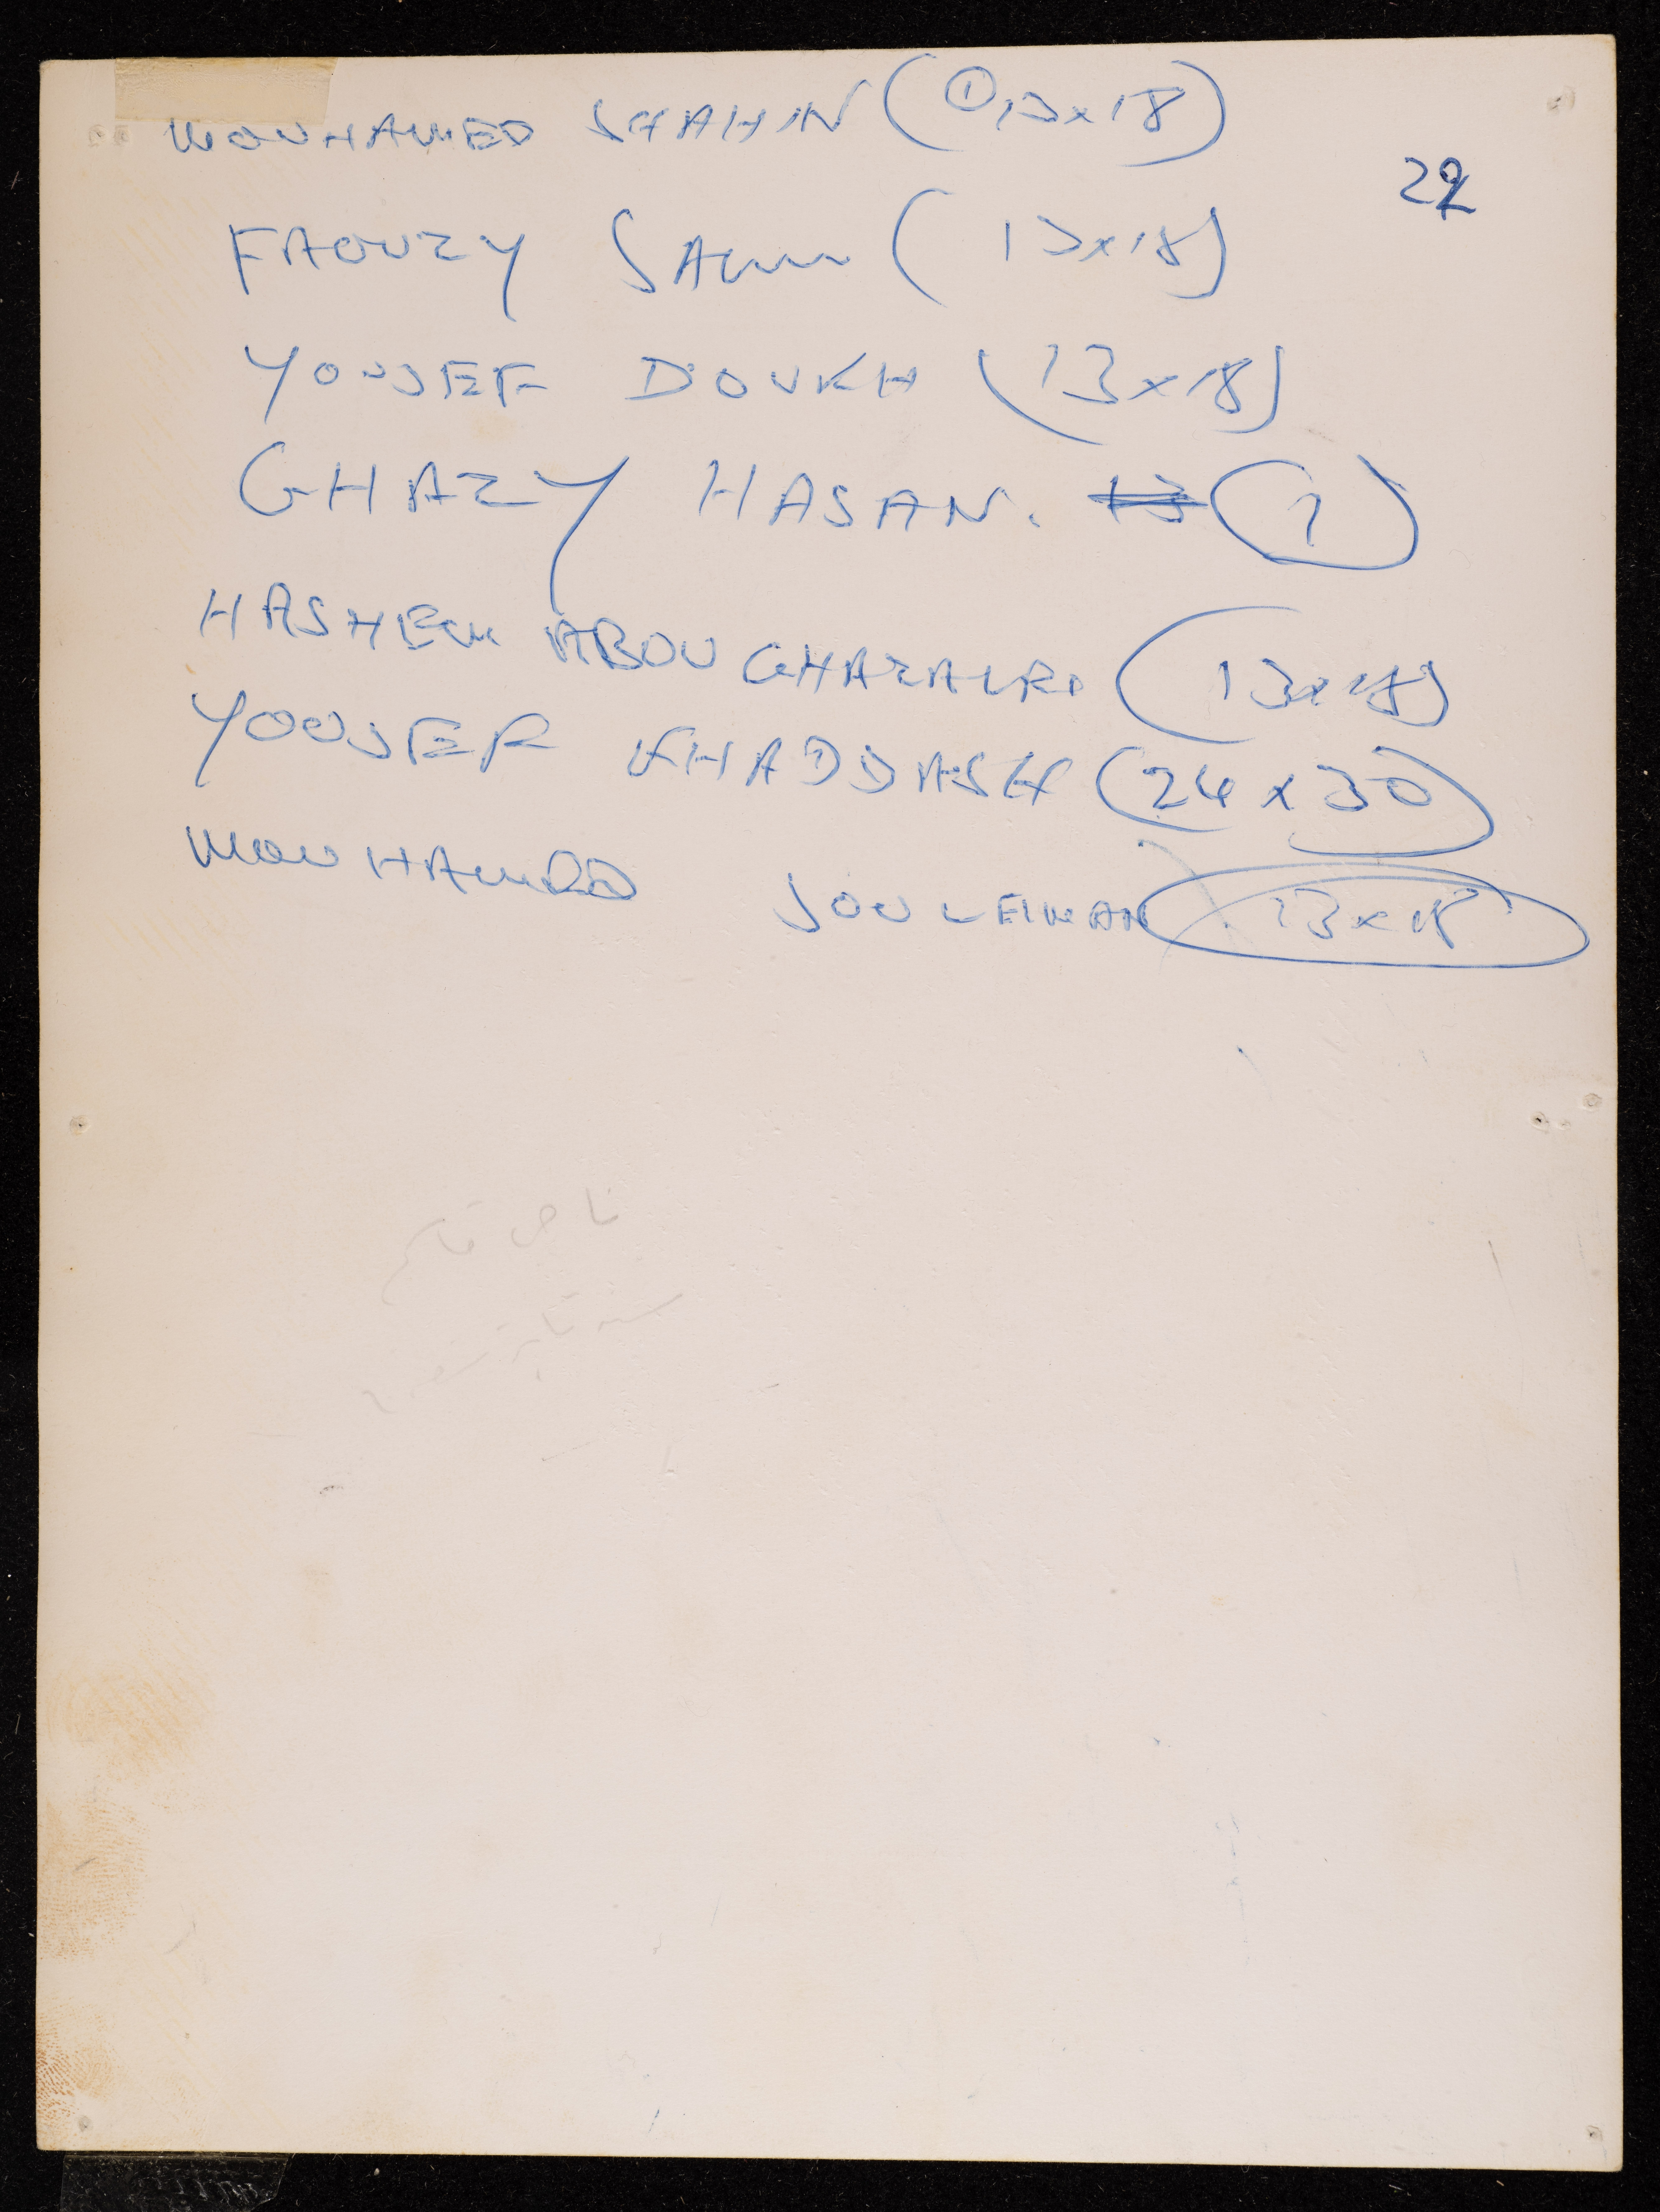 MOUHAMED SHAHIN (① 13x18)
22
FAOUZY SALIM (13x18)
YOUSEF DOUKH (13x18)
GHAZY HASAN. 13 (1)
HASHEM ABOU GHAZALEH (13x18)
YOUSEF KHADDASH (24x30)
MOUHAMED SOULEIMAN 13x18
قاسم